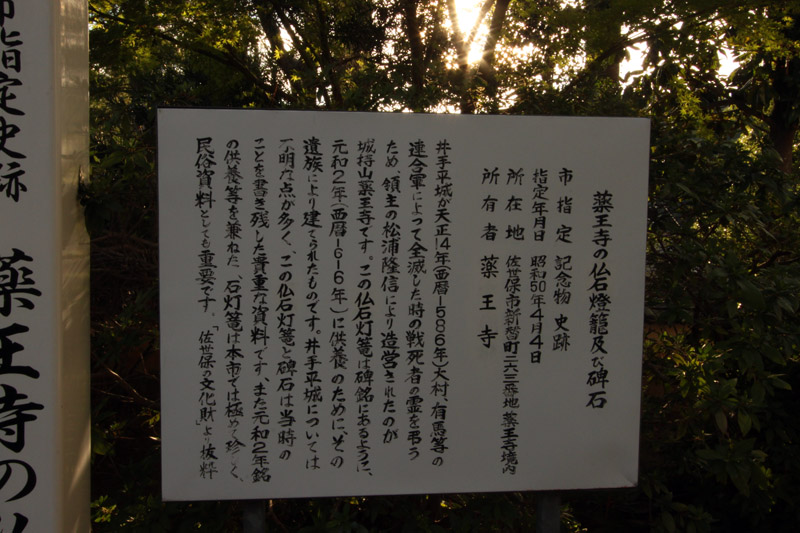 市指定史跡 薬王寺の仏
薬王寺の仏石燈籠及び碑石
市指定 記念物 史跡
指定年月日 昭和50年4月4日
所在地 佐世保市新替町二六三番地 薬王寺境内
所有者 薬王寺
井手平城が天正14年(西暦1586年)大村、有馬等の
連合軍によって全滅した時の戦死者の霊を弔う
ため、領主の松浦隆信により造営されたのが
城持山薬王寺です。この仏石灯篭は碑銘にあるように、
元和2年(西暦1616年)に供養のために、その
遺族により建てられたものです。井手平城については
不明な点が多く、この仏石灯篭と碑石は当時の
ことを書き残した貴重な資料です、また元和2年銘
の供養等を兼ねた、石灯篭は本市では極めて珍しく、
民俗資料としても重要です。「佐世保の文化財」より抜粋